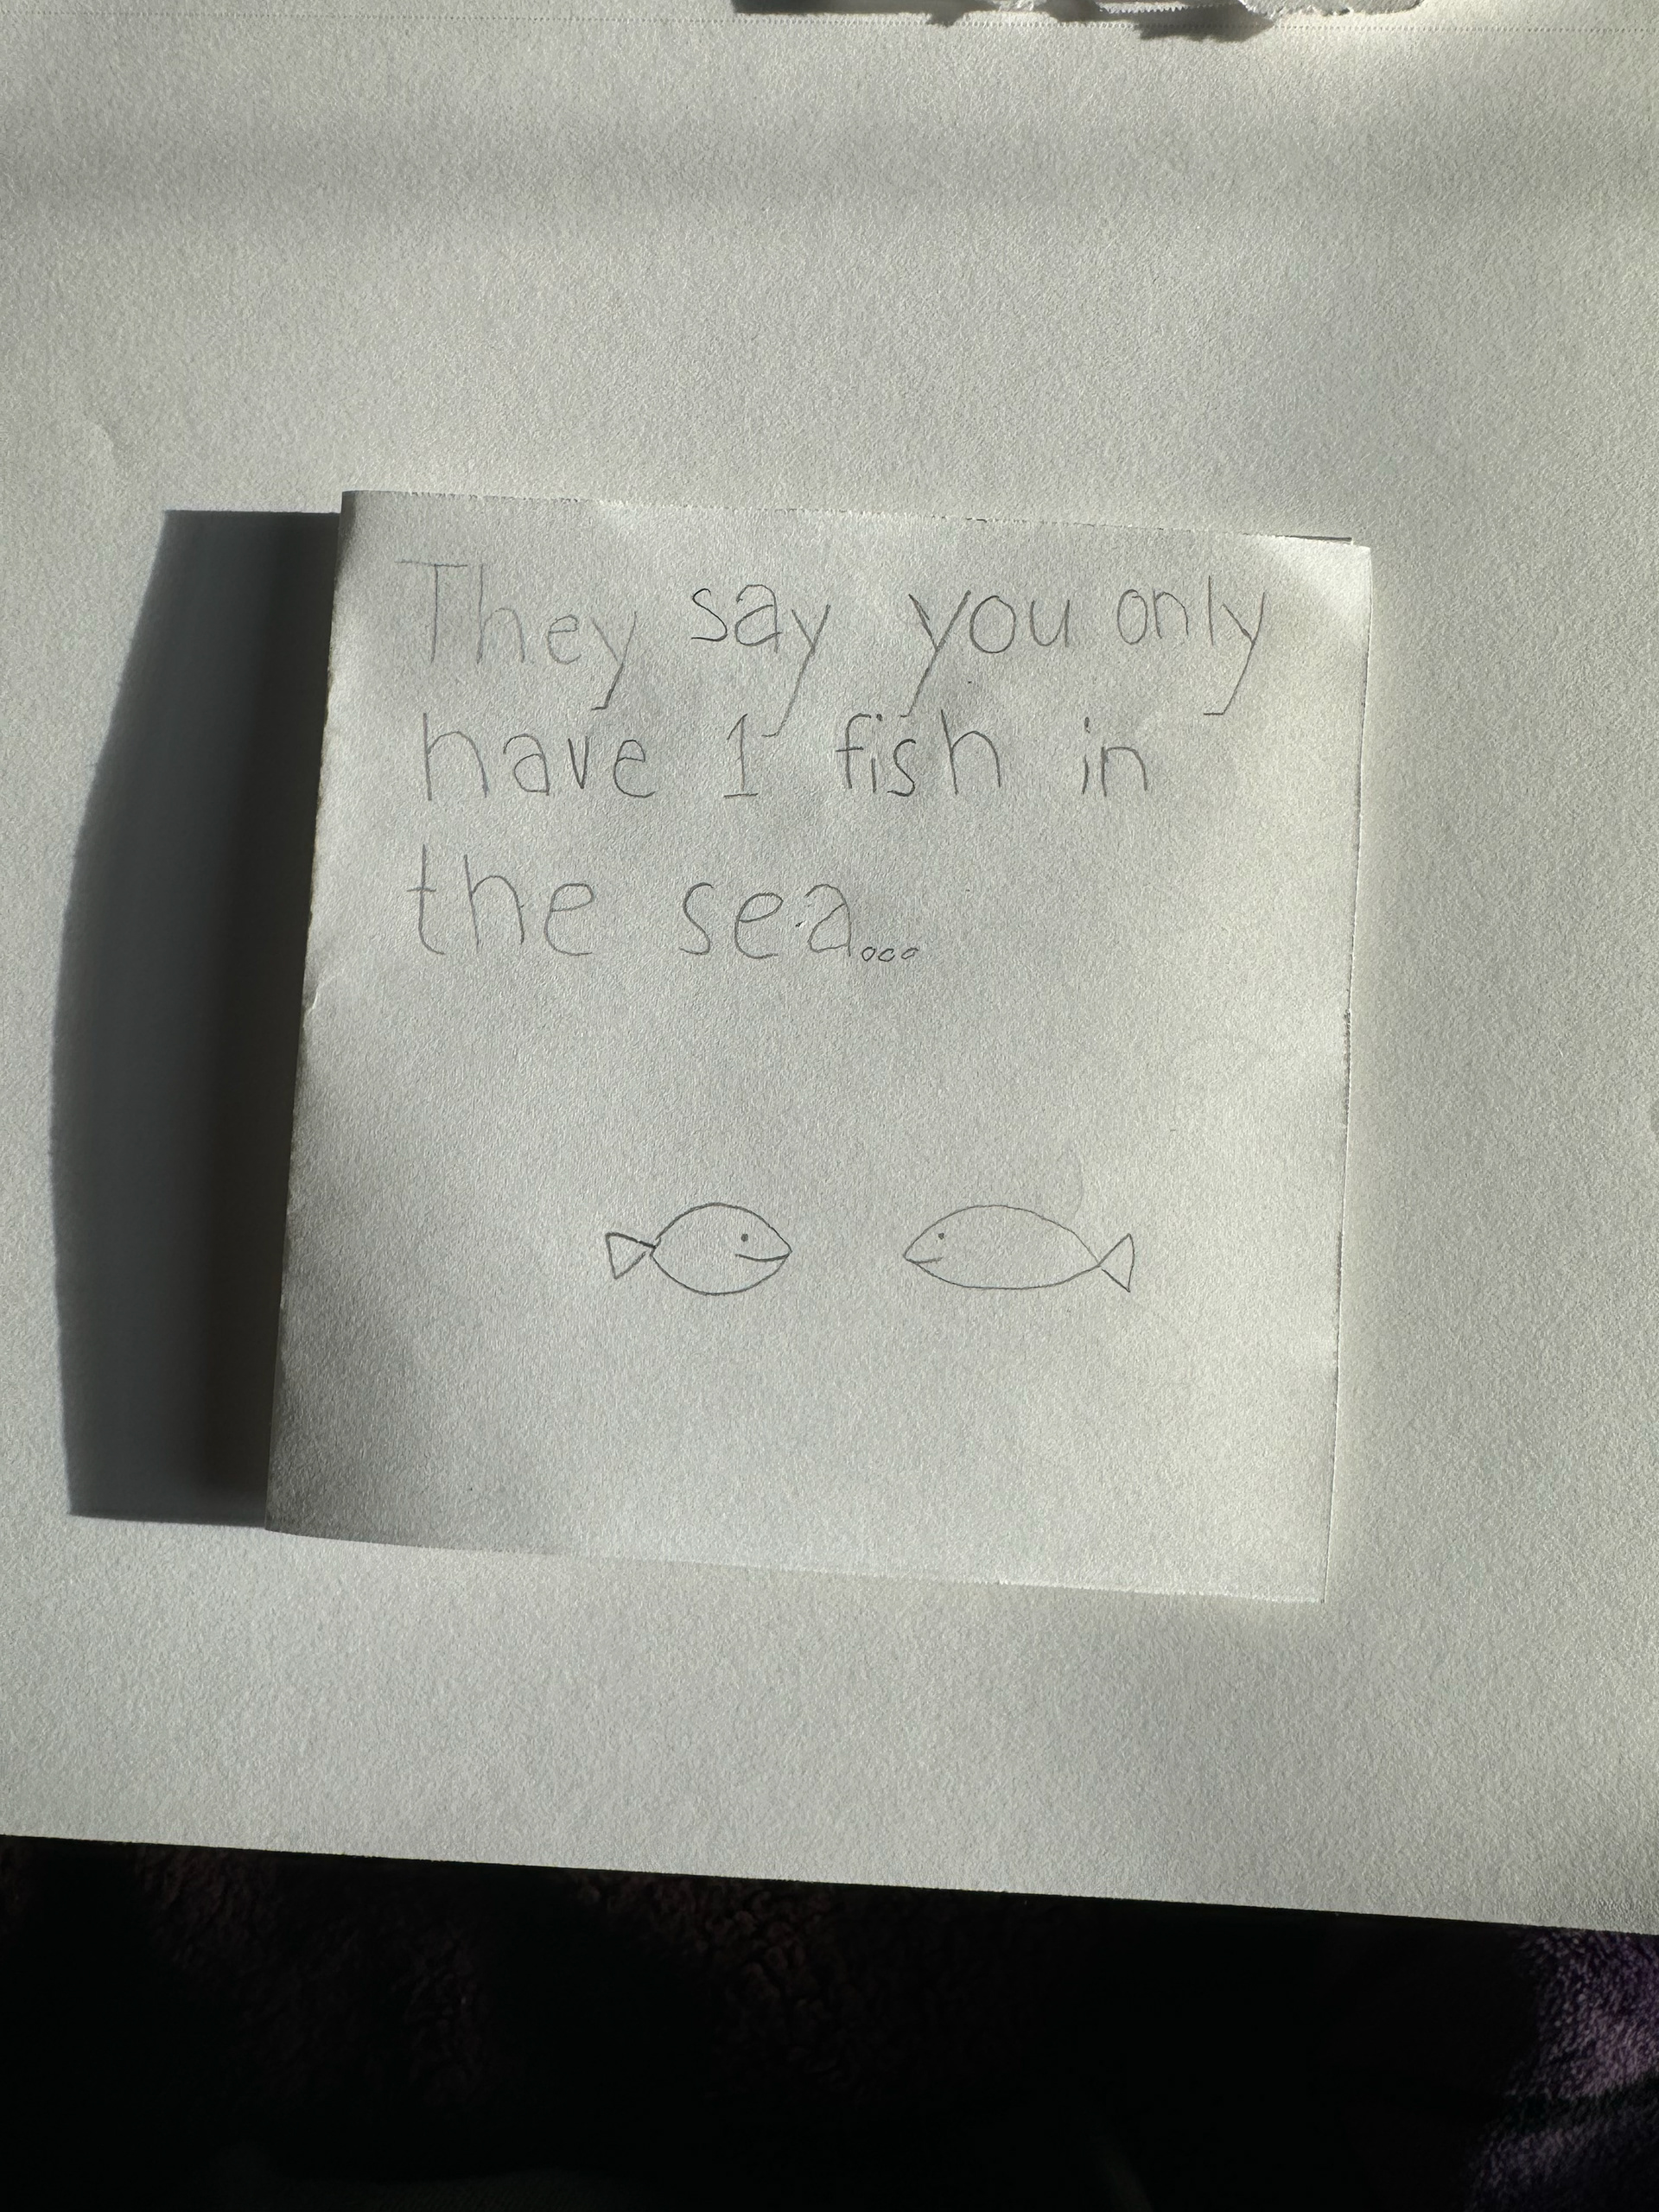 They say you only
have 1 fish in
the sea...